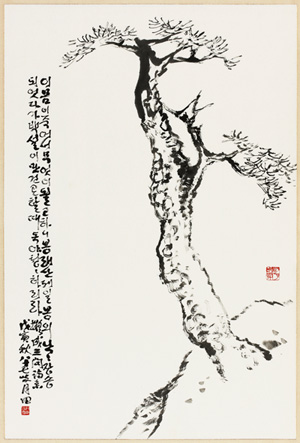 이몸이죽어서무엇이될고하니봉래산제일봉의낙낙장송
되엿다가백설이만건곤할때독야창창하리라 成三問詩
戊寅秋 月田